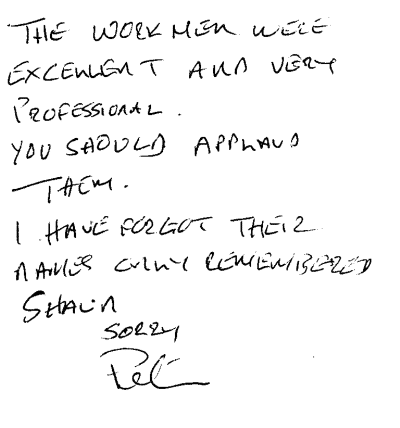 THE WORKMEN WERE
EXCELLENT AND VERY
PROFESSIONAL.
YOU SHOULD APPLAUD
THEM.
I HAVE FORGOT THEIR
NAMES ONLY REMEMBERED
SHAUN
SORRY